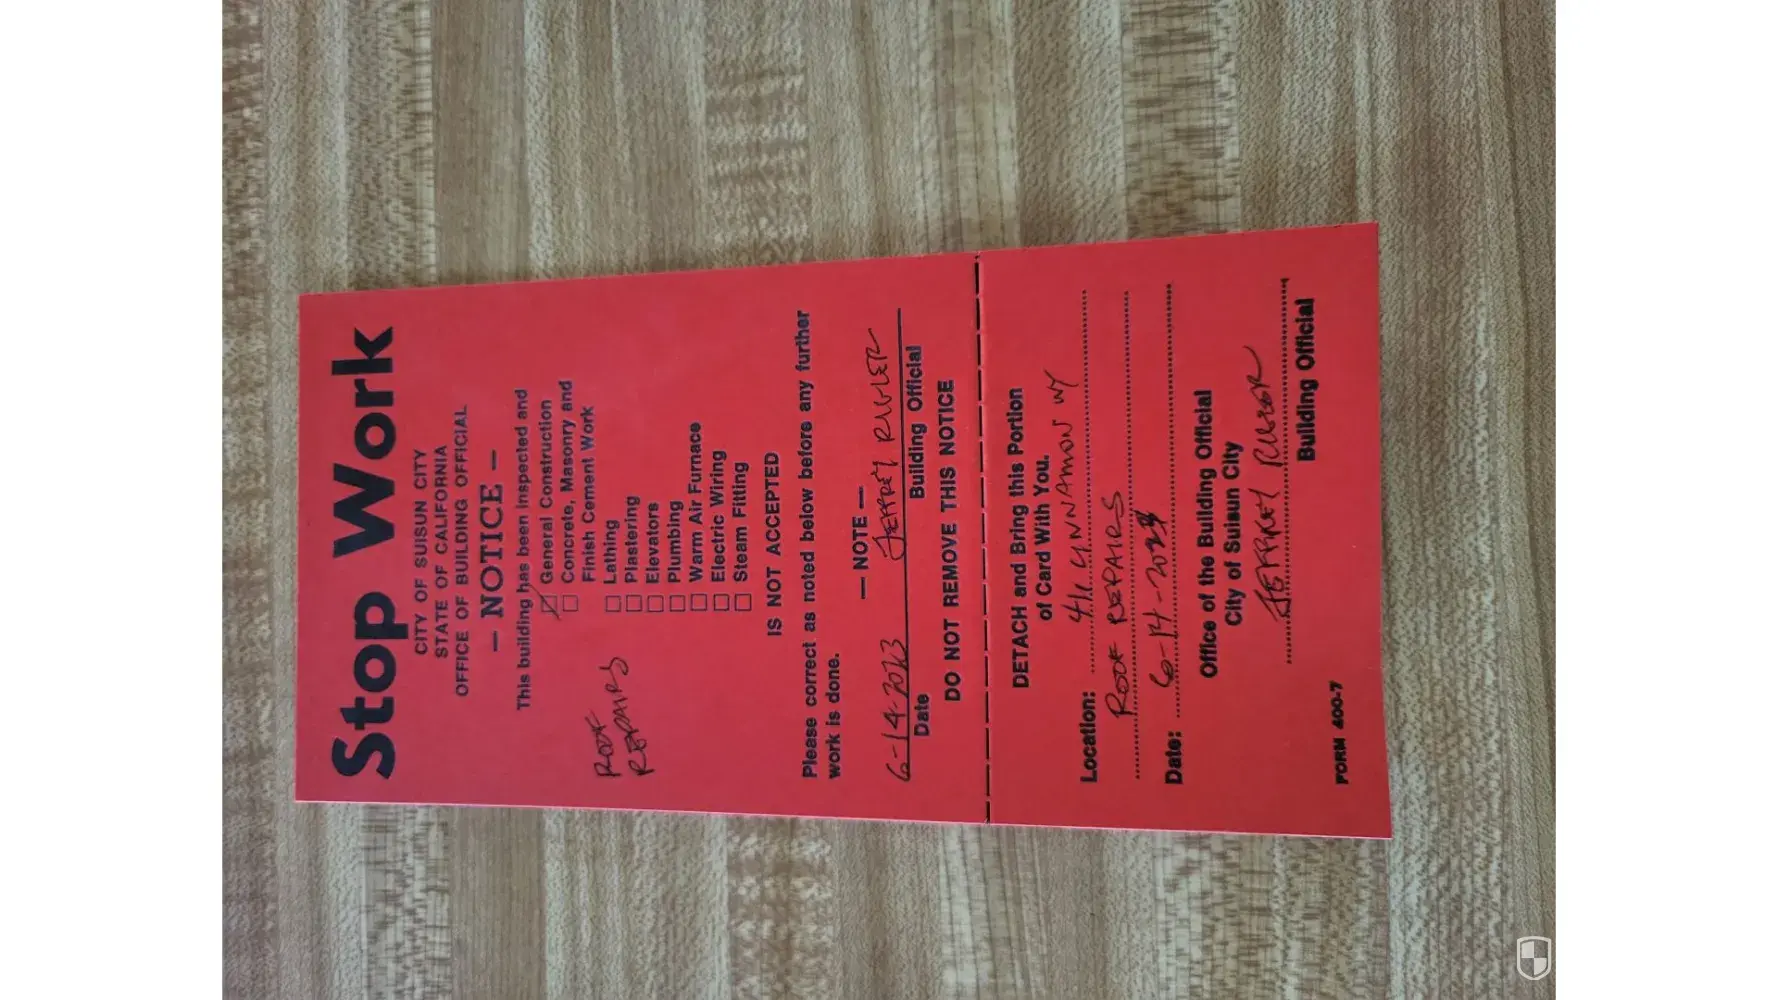 Stop Work
CITY OF SUISUN CITY
STATE OF CALIFORNIA
OFFICE OF BUILDING OFFICIAL
— NOTICE —
This building has been inspected and
General Construction
Concrete, Masonry and
Finish Cement Work
Lathing
Plastering
Elevators
Plumbing
Warm Air Furnace
Electric Wiring
Steam Fitting
ROOF
REPAIRS
IS NOT ACCEPTED
Please correct as noted below before any further
work is done.
— NOTE —
6-14-2023 JEFFREY
Date Building Official
DO NOT REMOVE THIS NOTICE
DETACH and Bring this Portion
of Card With You.
Location: WY
ROOF REPAIRS
Date: 6-14-
Office of the Building Official
City of Suisun City
JEFFREY
Building Official
FORM 400-7